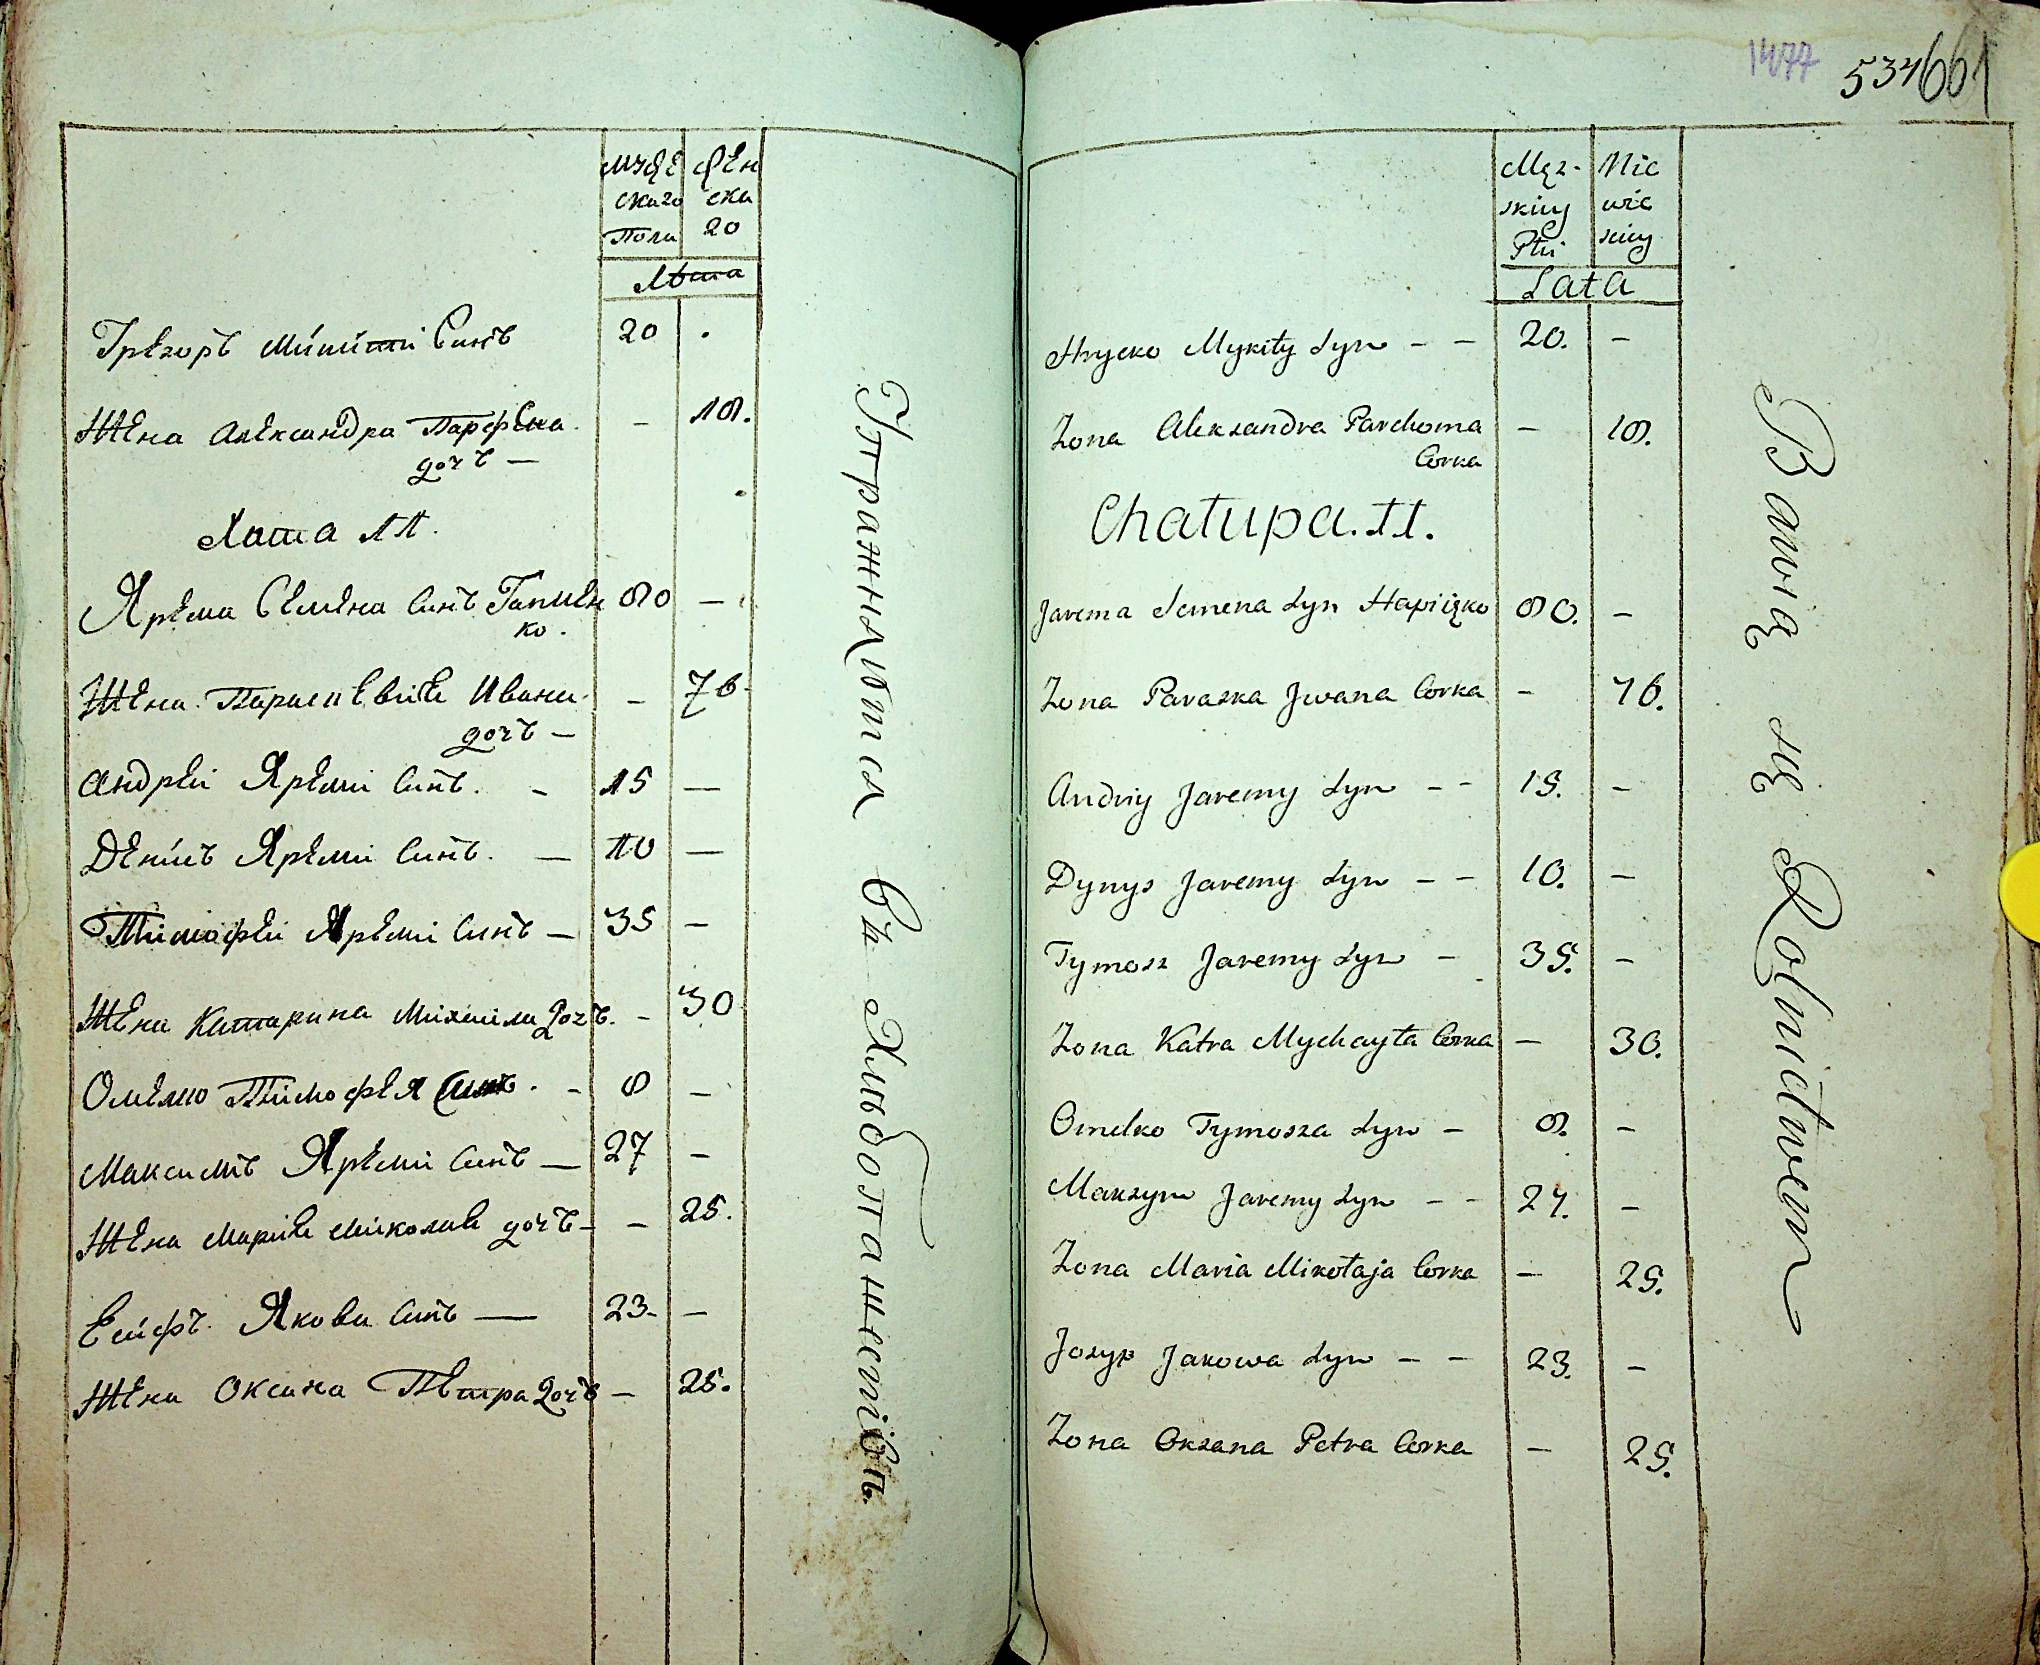 1477 534 661
мужескаго Пола
женскаго
Лѣта
Грѣгоръ Микиты Сынъ 20 .
Жена Александра Парфена 18.
дочъ —
Хата 11.
Ярема Семена Сынъ Гапиен 80 —
ко.
Жена Параскевіа Ивана — 76.
дочъ —
Андрей Яреми Сынъ. — 15 —
Денисъ Яреми Сынъ. — 10 —
Тимофей Яреми Сынъ — 35 —
Жена Катарина Михаила дочъ. — 30
Омелко Тимофея Сынъ. — 8 —
Максимъ Яреми Сынъ — 27 —
Жена Маріа Миколая дочъ — — 25.
Есифъ Якова Сынъ — 23. —
Жена Оксана Петра дочъ — 25.
Упражняются въ Хлѣбопашествѣ.
Męz-
skiey
Płci
Nie
wie
sciey
Lata
Hrycko Mykity Syn - - 20. -
Zona Alexandra Parchoma - 18.
Corka
Chałupa. 11.
Jarema Semena Syn Hapiięko 80. -
Zona Paraska Jwana Corka - 76.
Andriy Jaremy Syn - - 15. -
Dynys Jaremy Syn - - 10. -
Tymosz Jaremy Syn - 35. -
Zona Katra Mychayła Corka - 30.
Omelko Tymosza Syn - 8. -
Maxzym Jaremy Syn - - 27. -
Zona Maria Mikołaja Corka - 25.
Jozyp Jakowa Syn - - 23. -
Zona Oxana Petra Corka - 25.
Bawią się Rolnictwem